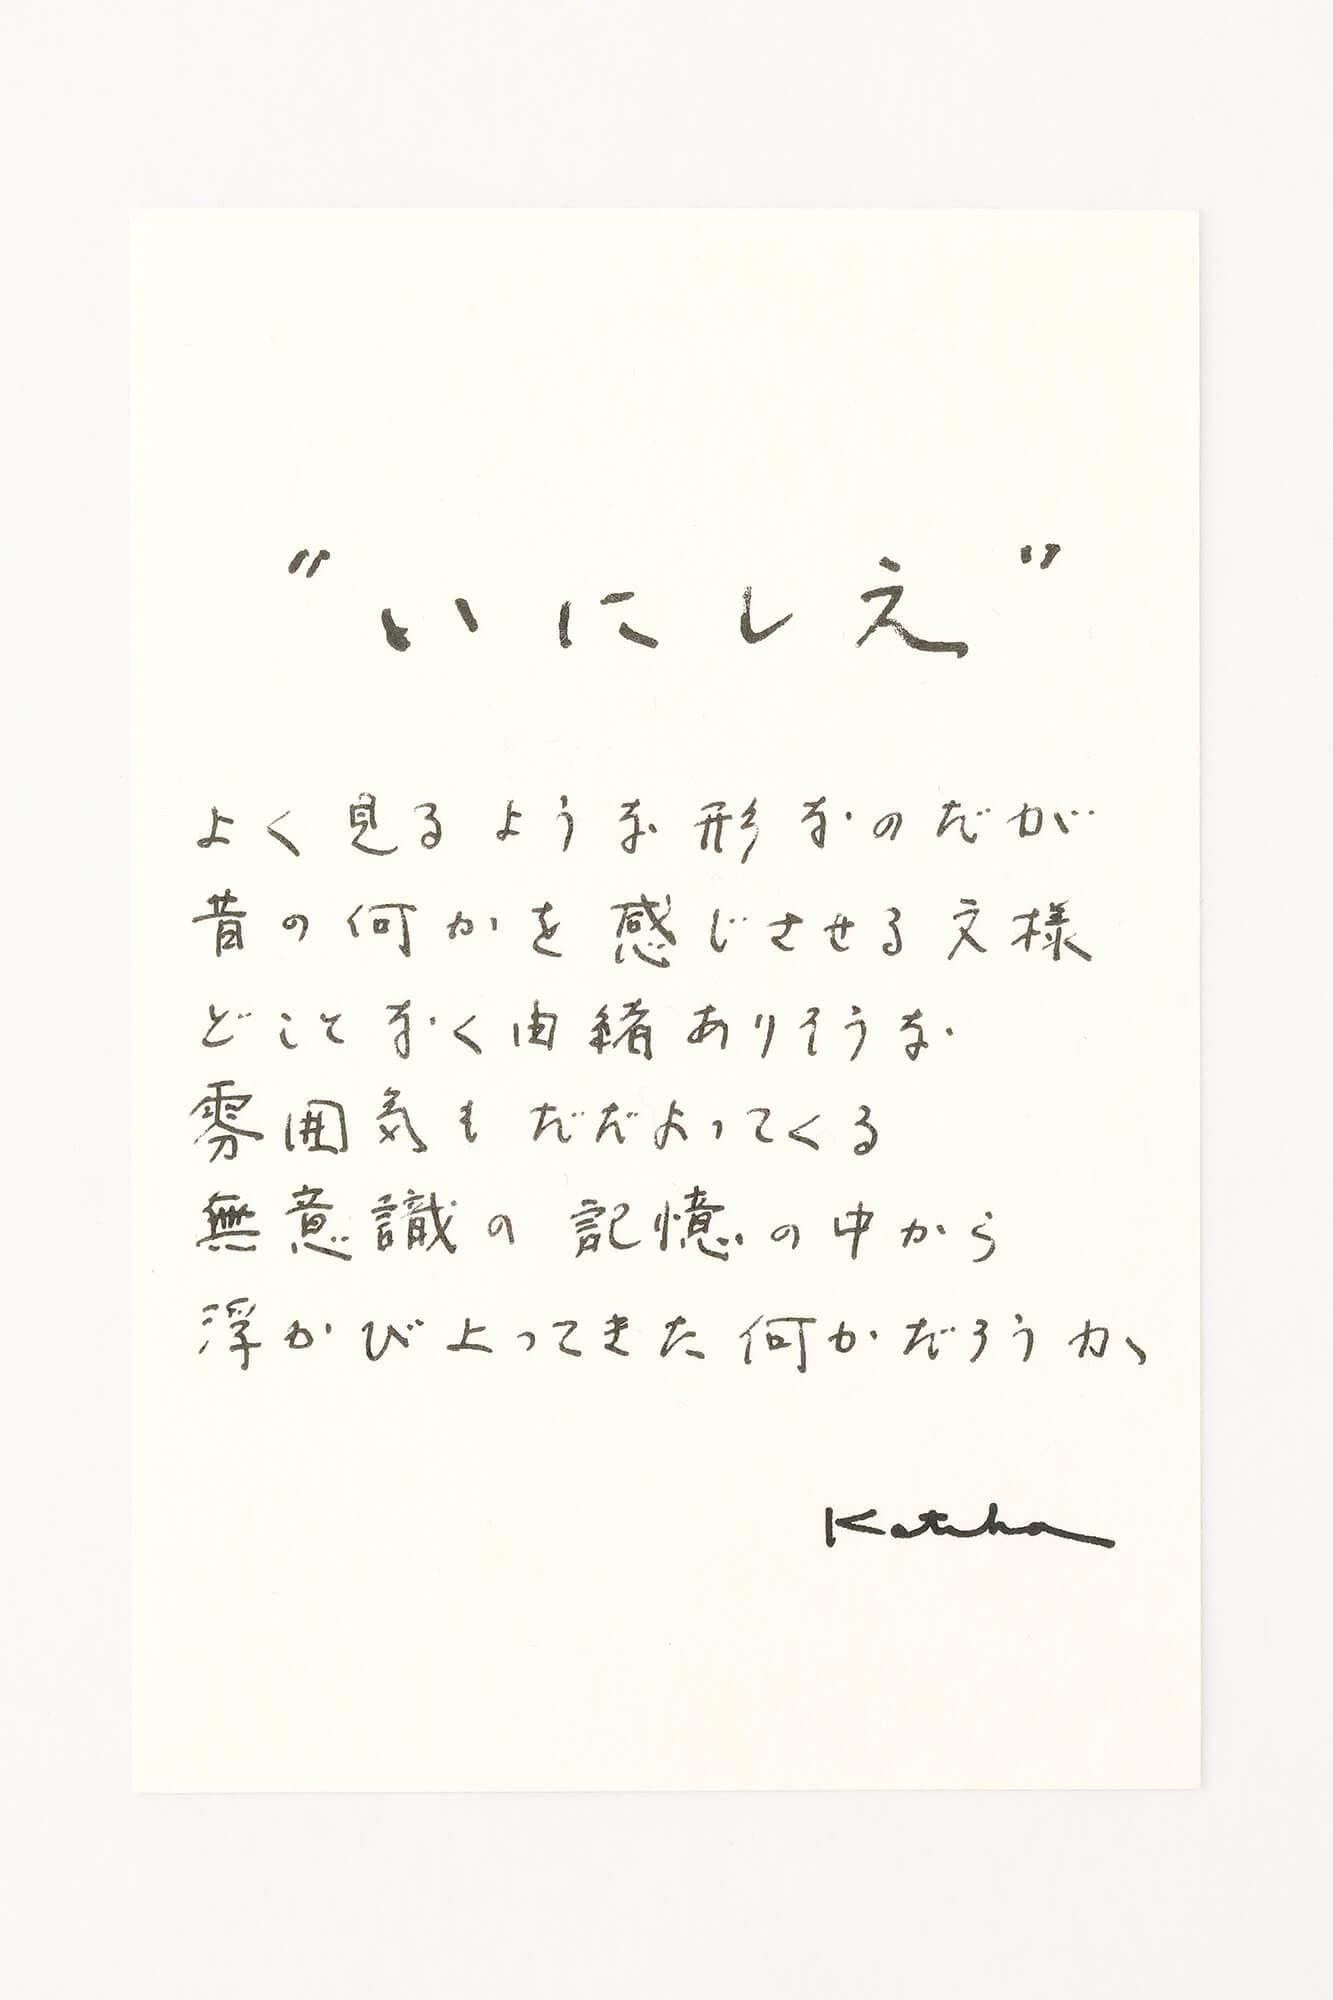 "いにしえ"
よく見るような形なのだが
昔の何かを感じさせる文様
どことなく由緒ありそうな
雰囲気もだだよってくる
無意識の記憶の中から
浮かび上ってきた何かだろうか、
Katsuha